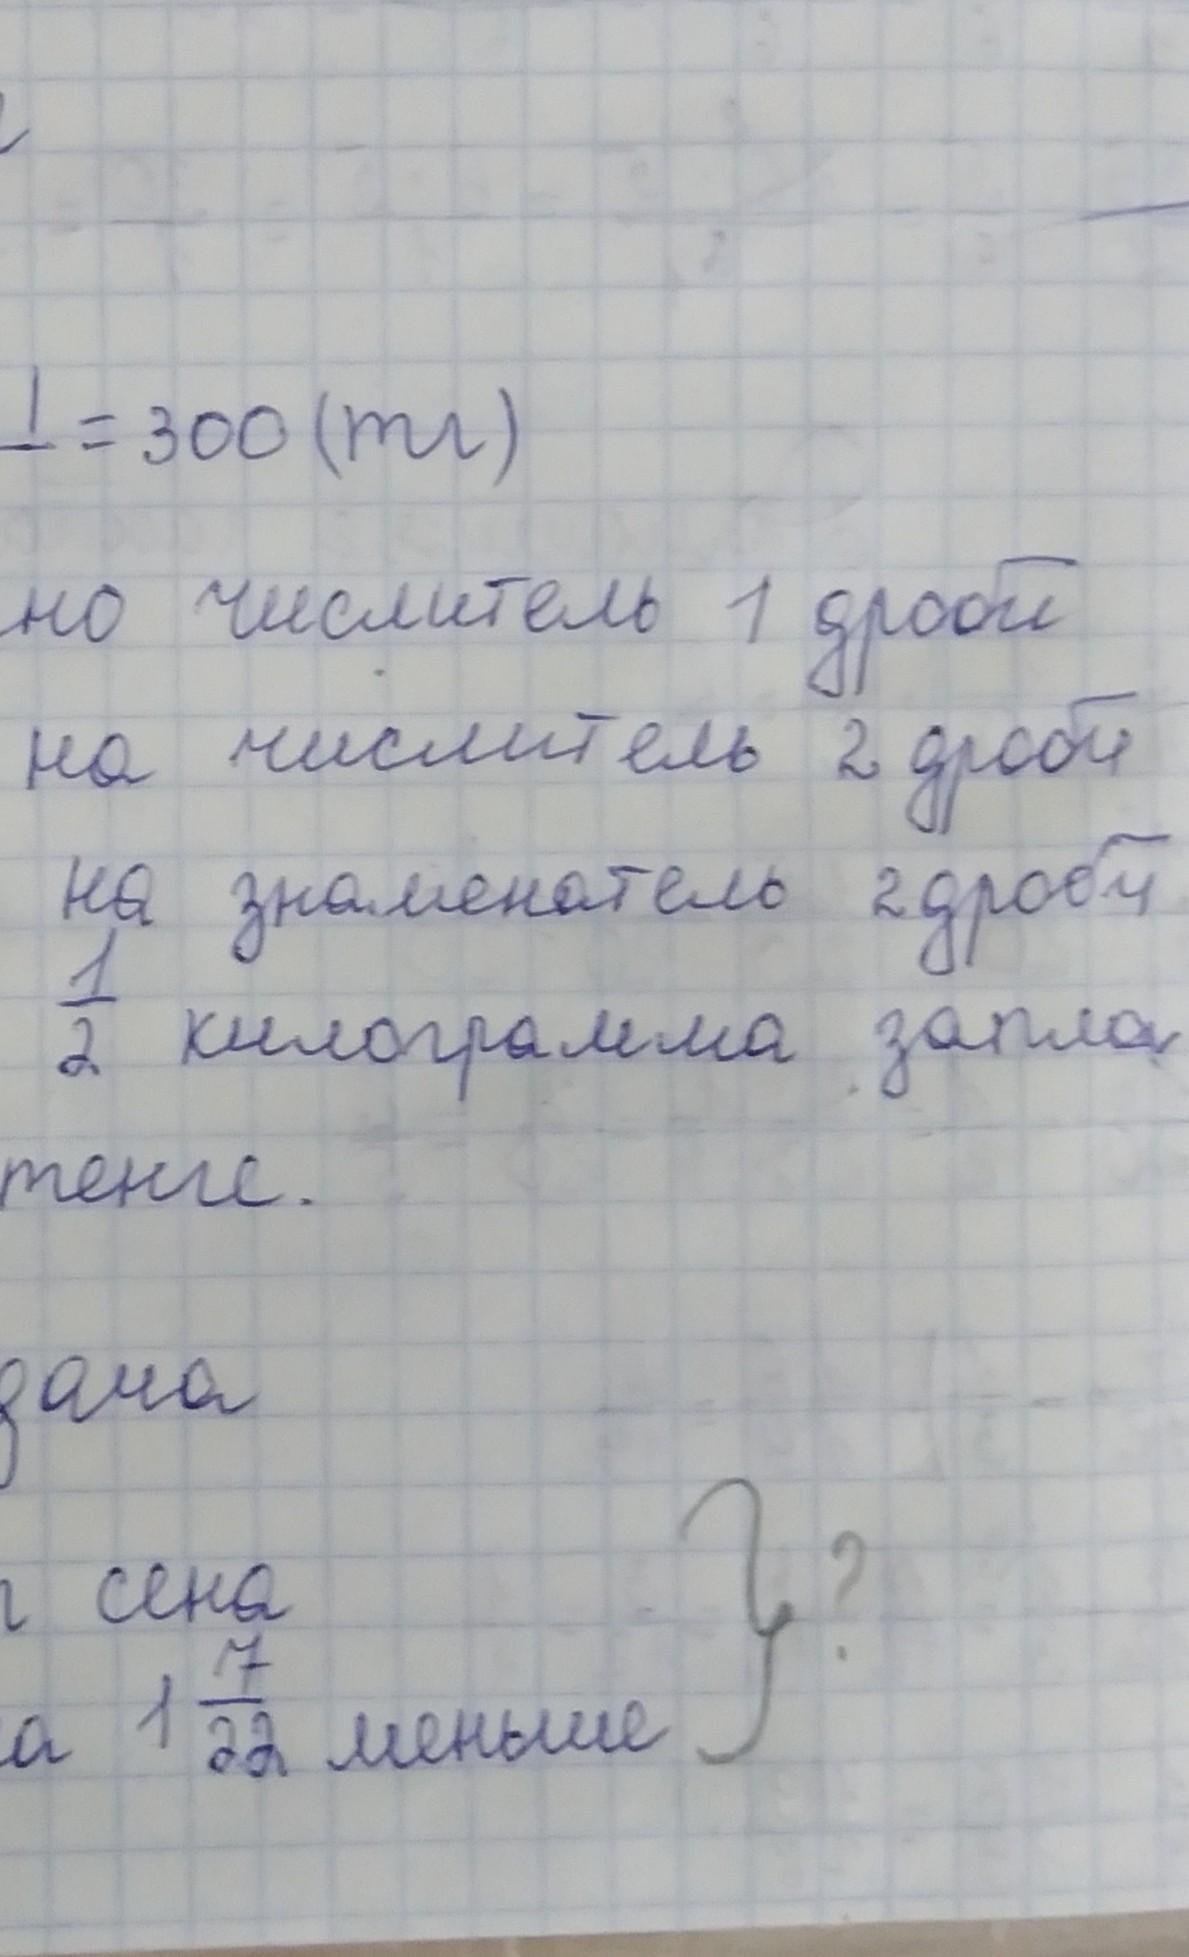 1 = 300 (тг)
но числитель 1 дроби
на числитель 2 дроби
на знаменатель 2 дроби
1/2 килограмма запла
тенге.
дача
сена
на 1 7/22 меньше } ?